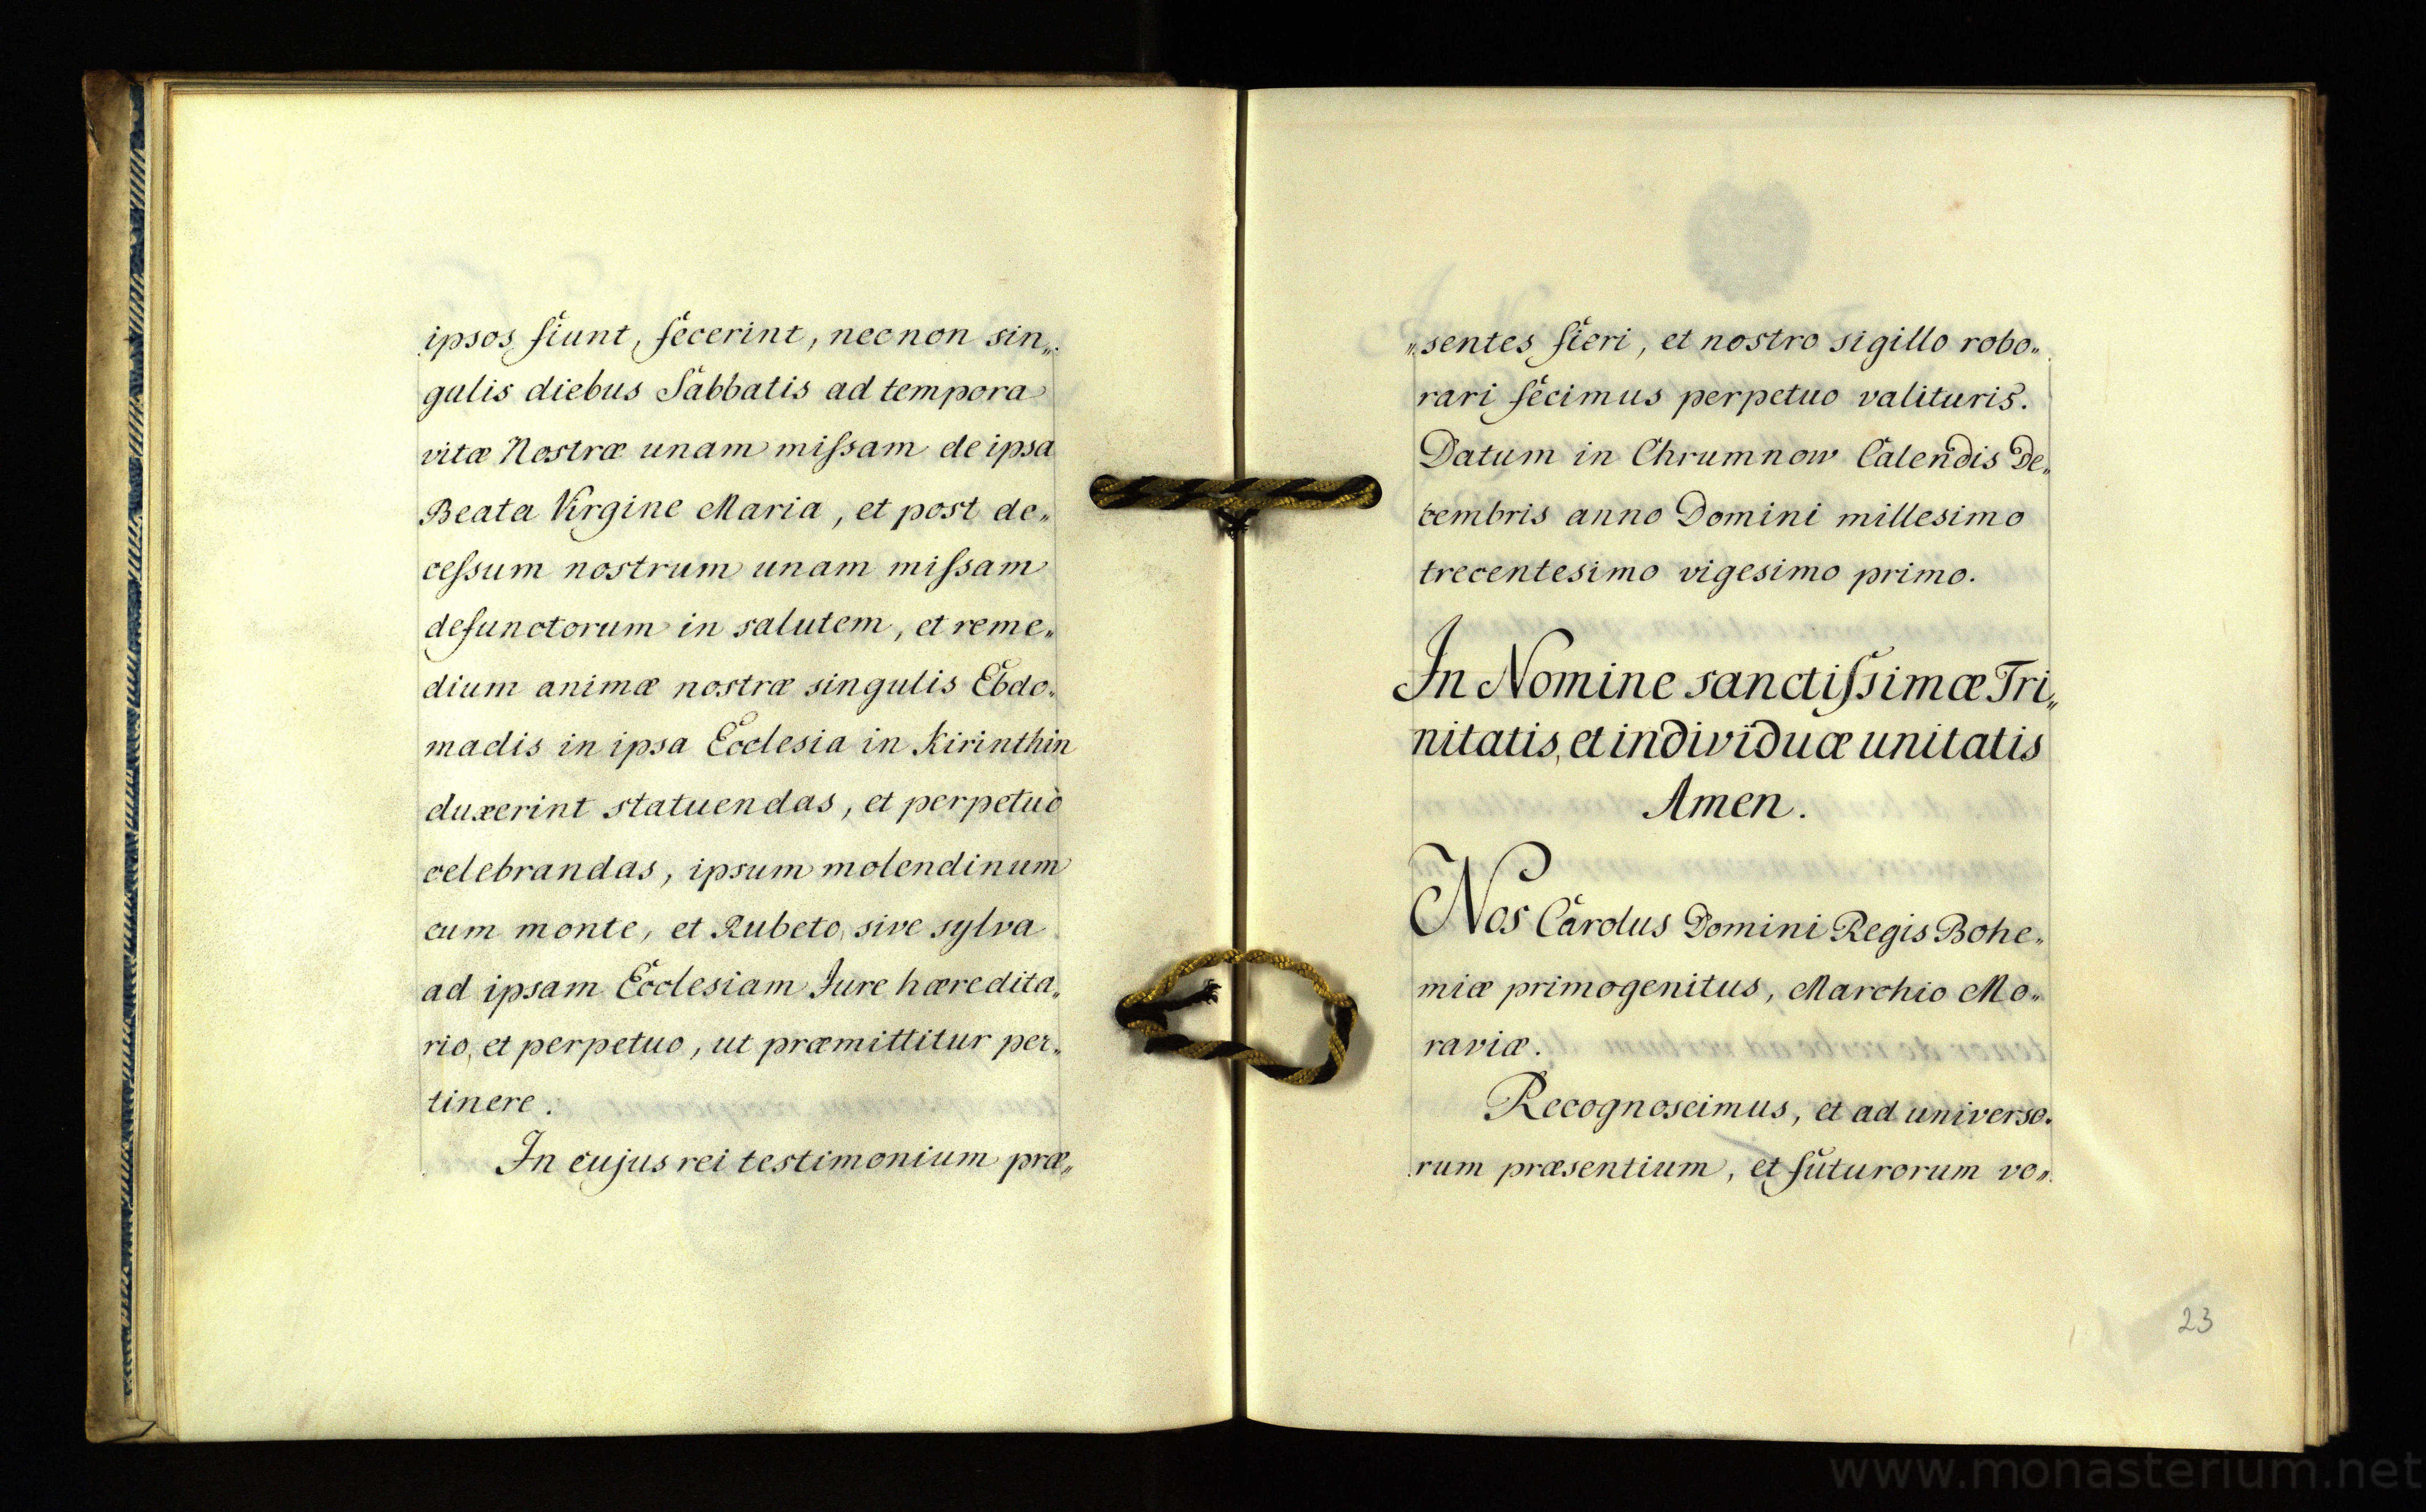 ipsos fiunt, fecerint, necnon sin„
gulis diebus Sabbatis ad tempora
vitæ Nostræ unam miſsam de ipsa
Beata Virgine Maria, et post de„
ceſsum nostrum unam miſsam
defunctorum in salutem, et reme„
dium animæ nostræ singulis Ebdo„
madis in ipsa Ecclesia in Kirinthin
duxerint statuendas, et perpetuò
celebrandas, ipsum molendinum
cum monte, et Rubeto, sive sylva
ad ipsam Ecclesiam Jure hæredita„
rio, et perpetuo, ut præmittitur per„
tinere.
In cujus rei testimonium præ„
„sentes fieri, et nostro sigillo robo„
rari fecimus perpetuo valituris.
Datum in Chrumnow Calendis De„
cembris anno Domini millesimo
trecentesimo vigesimo primo.
In Nomine sanctiſsimæ Tri„
nitatis, et individuæ unitatis
Amen.
Nos Carolus Domini Regis Bohe„
miæ primogenitus, Marchio Mo„
raviæ.
Recognoscimus, et ad universo„
rum præsentium, et futurorum vo„
23
www.monasterium.net